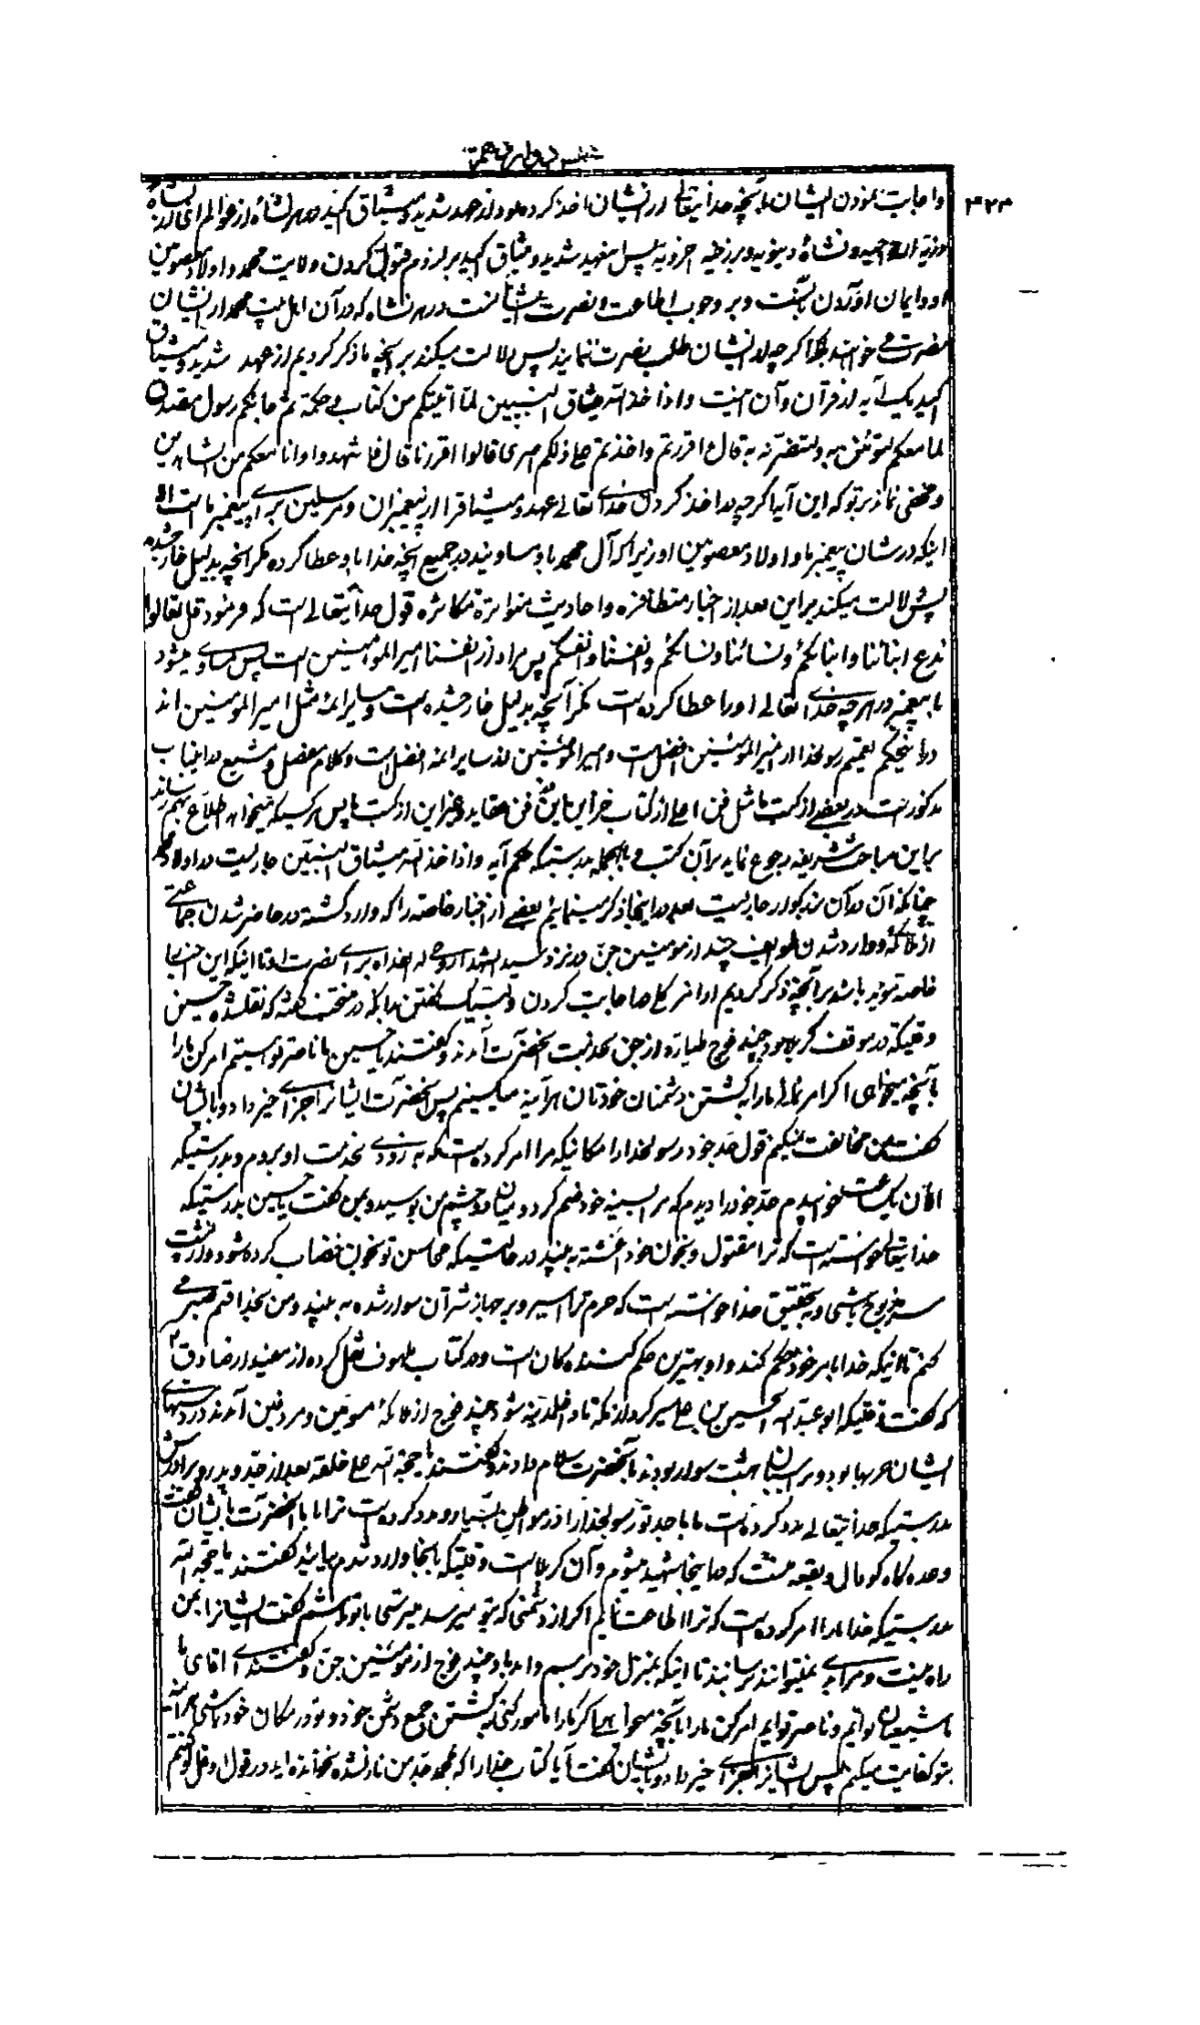 مجلس دوازدهم
۴۲۳
و اجابت نمودن ایشان بآنچه خدایتعالی از ایشان اخذ کرده بود از عهد شدید و میثاق اکید در هر نشاه از عوالم
و نشاهٔ دنیویه و برزخیه اخرویه پس عهد شدید و میثاق اکید بر لزوم قبول کردن ولایت محمد و اولاد معصومین
او و ایمان آوردن و بر وجوب اطاعت و نصرت ایشان است در هر نشاه که در آن اهل بیت محمد از ایشان
نصرت خواهند اگرچه از ایشان طلب نصرت ننمایند پس دلالت میکند بر آنچه ما ذکر کردیم از عهد شدید و میثاق
اکید یک آیه از قرآن و آن اینست و اذ اخذ الله میثاق النبیین لما آتیتکم من کتاب و حکمة ثم جائکم رسول مصدق
لما معکم لتؤمنن به و لتنصرنه قال ءاقررتم و اخذتم علی ذلکم اصری قالوا اقررنا قال فاشهدوا و انا معکم من الشاهدین
و مخفی نماند بر تو که این آیه اگرچه در اخذ کردن خدای تعالی عهد و میثاق را از پیغمبران و مرسلین برای پیغمبر ما است الا
اینکه در شان پیغمبر ما و اولاد معصومین او زیرا که آل محمد با او مساویند در جمیع آنچه خدا باو عطا کرده مگر آنچه بدلیل خارج شده
پس دلالت میکند بر این بعد از اخبار متظافره و احادیث متواتره متکاثره قول خدایتعالی است که فرمود قل تعالوا
ندع ابنائنا و ابنائکم و نسائنا و نسائکم و انفسنا و انفسکم پس مراد از انفسنا امیرالمومنین است پس مساوی میشود
با پیغمبر در هر چه خدای تعالی او را عطا کرده است مگر آنچه بدلیل خارج شده است و سایر ائمه مثل امیرالمومنین اند
در اینحکم رسولخدا از امیرالمومنین افضل است و امیرالمومنین از سایر ائمه افضل است و کلام مفصل و مشبع در اینباب
مذکور است در بعضی از کتب ما مثل فن اعلی از کتاب خزاین فن عقاید و غیر این از کتب ما پس هر کسیکه میخواهد اطلاع بهم رساند
بر این مباحث شریفه رجوع نماید بر آن کتب و بالجمله بدرستیکه حکم آیه و اذ اخذ الله میثاق النبیین جاریست در اولاد محمد
چنانکه آن در آن بزرگوار جاریست بعد در اینجا ذکر مینمایم بعضی از اخبار خاصه را که وارد گشته در حاضر شدن جماعتی
از ملائکه و وارد شدن طوایف چند از مومنین جن در نزد سید الشهدا روحی له الفداء برای نصرت او تا اینکه این اخبار
خاصه موید باشد بر آنچه ذکر کردیم اجابت کردن و لبیک گفتن در منتخب گفته که نقلشده حسین
وقتیکه در موقف کربلا بود چند فوج طیاره از جن بخدمت آنحضرت آمدند و گفتند یا حسین ما ناصر تو هستیم امر کن ما را
بآنچه میخواهی اگر امر نمائی ما را بکشتن دشمنان خودتان هرآینه میکنیم پس آنحضرت ایشانرا جزای خیر داد و بایشان
گفت من مخالفت نمیکنم قول جد خود رسولخدا را مکانیکه مرا امر کرده است که به زودی بخدمت او بروم و بدرستیکه
الآن یک ساعت خوابیدم جد خود را دیدم که مرا بسینه خود ضم کرد و میان دو چشم من بوسید و بمن گفت یا حسین بدرستیکه
خدایتعالی خواسته است که ترا مقتول و بخون خود آغشته به بیند در حالتیکه محاسن تو بخون خضاب کرده شود و از پشت
سر مذبوح باشی و بتحقیق خدا خواسته است که حرم ترا اسیر و بر جهاز شتران سوار شده به بیند و من بخدا قسم صبر می
کنم تا اینکه خدا بامر خود حکم کند و او بهترین حکم کننده گان است و در کتاب ملهوف نقل کرده از مفید از صادق
که گفت وقتیکه ابو عبدالله الحسین بن علی سیر کرد از مکه تا داخل مدینه شود چند فوج از ملائکه مسومین و مردفین آمدند در دستهای
ایشان حربها بود و بر اسبان بهشت سوار بودند بآنحضرت سلام دادند و گفتند یا حجة الله علی خلقه بعد از جد و پدر و برادرش
بدرستیکه خدایتعالی مدد کرده است ما با جد تو رسولخدا را در مواطن بسیار و مدد کرده است ترا با ما آنحضرت بایشان گفت
وعده گاه گودال و بقعه منست که در اینجا شهید میشوم و آن کربلا است وقتیکه بآنجا وارد شدم بیائید گفتند یا حجة الله
بدرستیکه خدا ما را امر کرده است که ترا اطاعت نمائیم اگر از دشمنی که بتو میرسد میترسی با تو باشیم گفت ایشانرا بمن
راه نیست و مرا نمیتوانند برسانند تا اینکه بمنزل خود برسم و آمد باو چند فوج از مومنین جن و گفتند ای آقای ما
ما شیعیان توایم و ناصر توایم امر کن ما را بآنچه میخواهی اگر ما را مامور کنی بکشتن جمیع دشمن خود و تو در مکان خود باشی هرآینه
بتو کفایت میکنیم پس ایشانرا جزای خیر داد و بایشان گفت آیا کتاب خدا را که بمحمد جد من نازلشده نخوانده اید در قول او قل لو کنتم